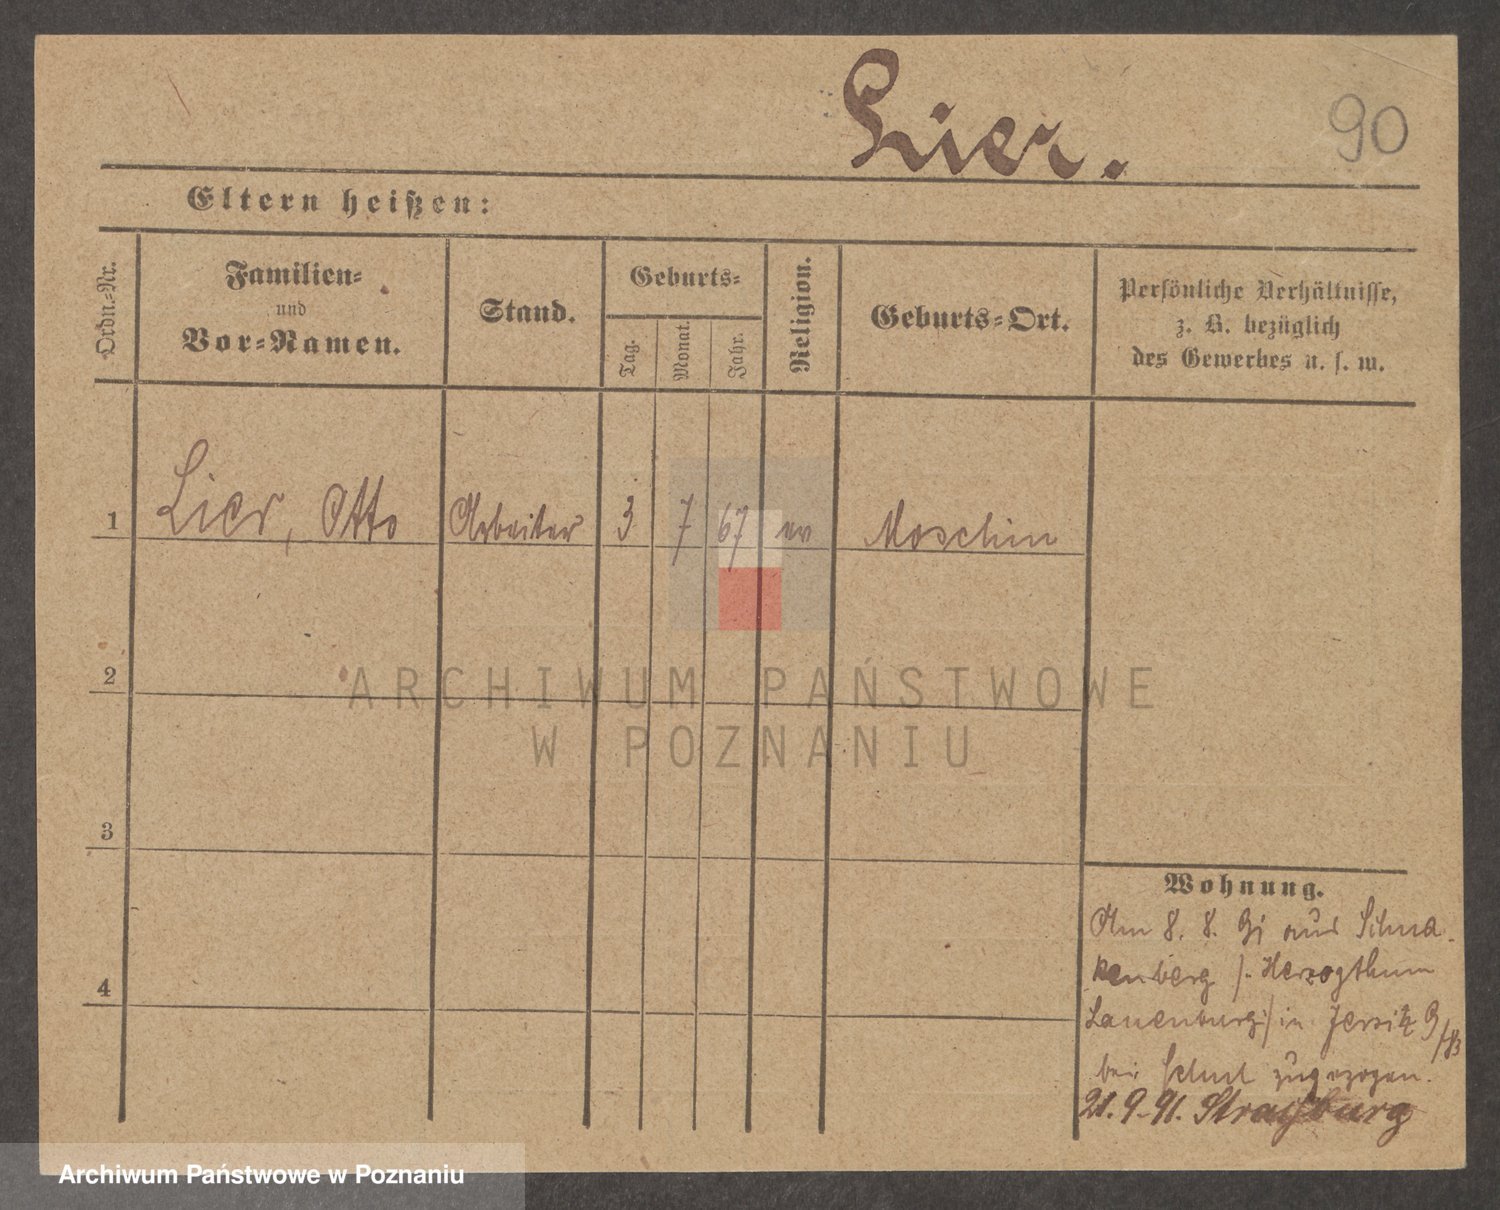 Lier.
90
Eltern heißen:
Ordn.-Nr.
Familien-
und
Vor-Namen.
Stand.
Geburts-
Tag.
Monat.
Jahr.
Religion.
Geburts-Ort.
Persönliche Verhältnisse,
z. B. bezüglich
des Gewerbes u. s. w.
1 Lier, Otto Arbeiter 3 7 67 ev Moschin
2
3
4
ARCHIWUM PAŃSTWOWE
W POZNANIU
Wohnung.
Am 8. 8. 91 aus Schna-
kenberg /: Herzogthum
Lauenburg :/ in Jersitz
bei zugezogen.
21. 9. 91. Straßburg
Archiwum Państwowe w Poznaniu